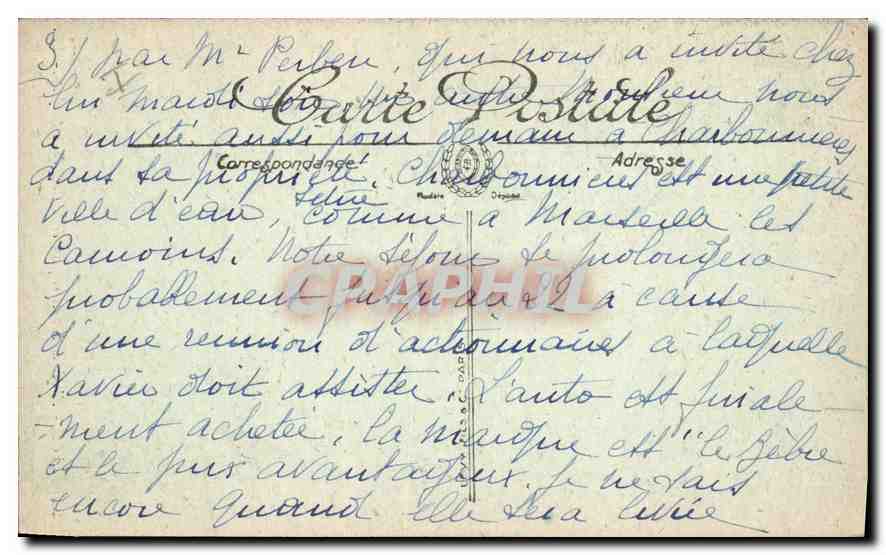 3/ par Mr Perben, qui nous a invité chez
lui mardi soir. Un autre Monsieur nous
Carte Postale
a invité aussi pour demain à Charbonnières
Correspondance Adresse
dans sa propriété. Charbonnières est une petite
Modèle Déposé
ville d'eau, située, comme à Marseille les
Camoins. Notre séjour se prolongera
CPAPHIL
probablement jusqu'au 22 à cause
d'une reunion d'actionnaires à laquelle
Xavier doit assister. L'auto est finale-
-ment achetée, la marque est "le Zèbre
et le prix avantageux. Je ne sais
encore quand elle sera livrée